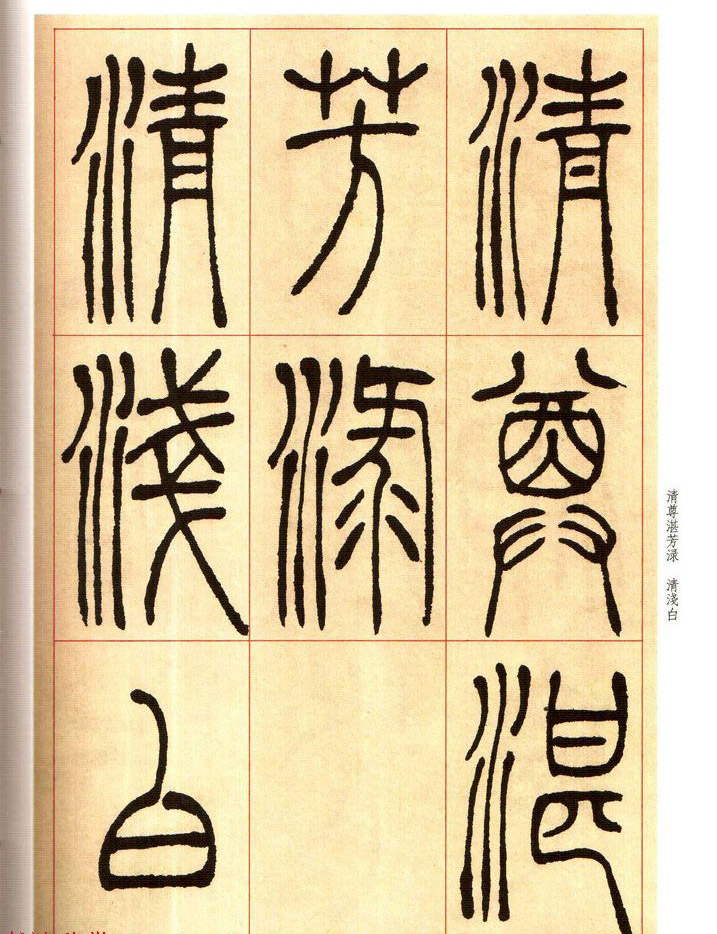 清尊湛
芳渌
清淺白
清尊湛芳渌 清淺白